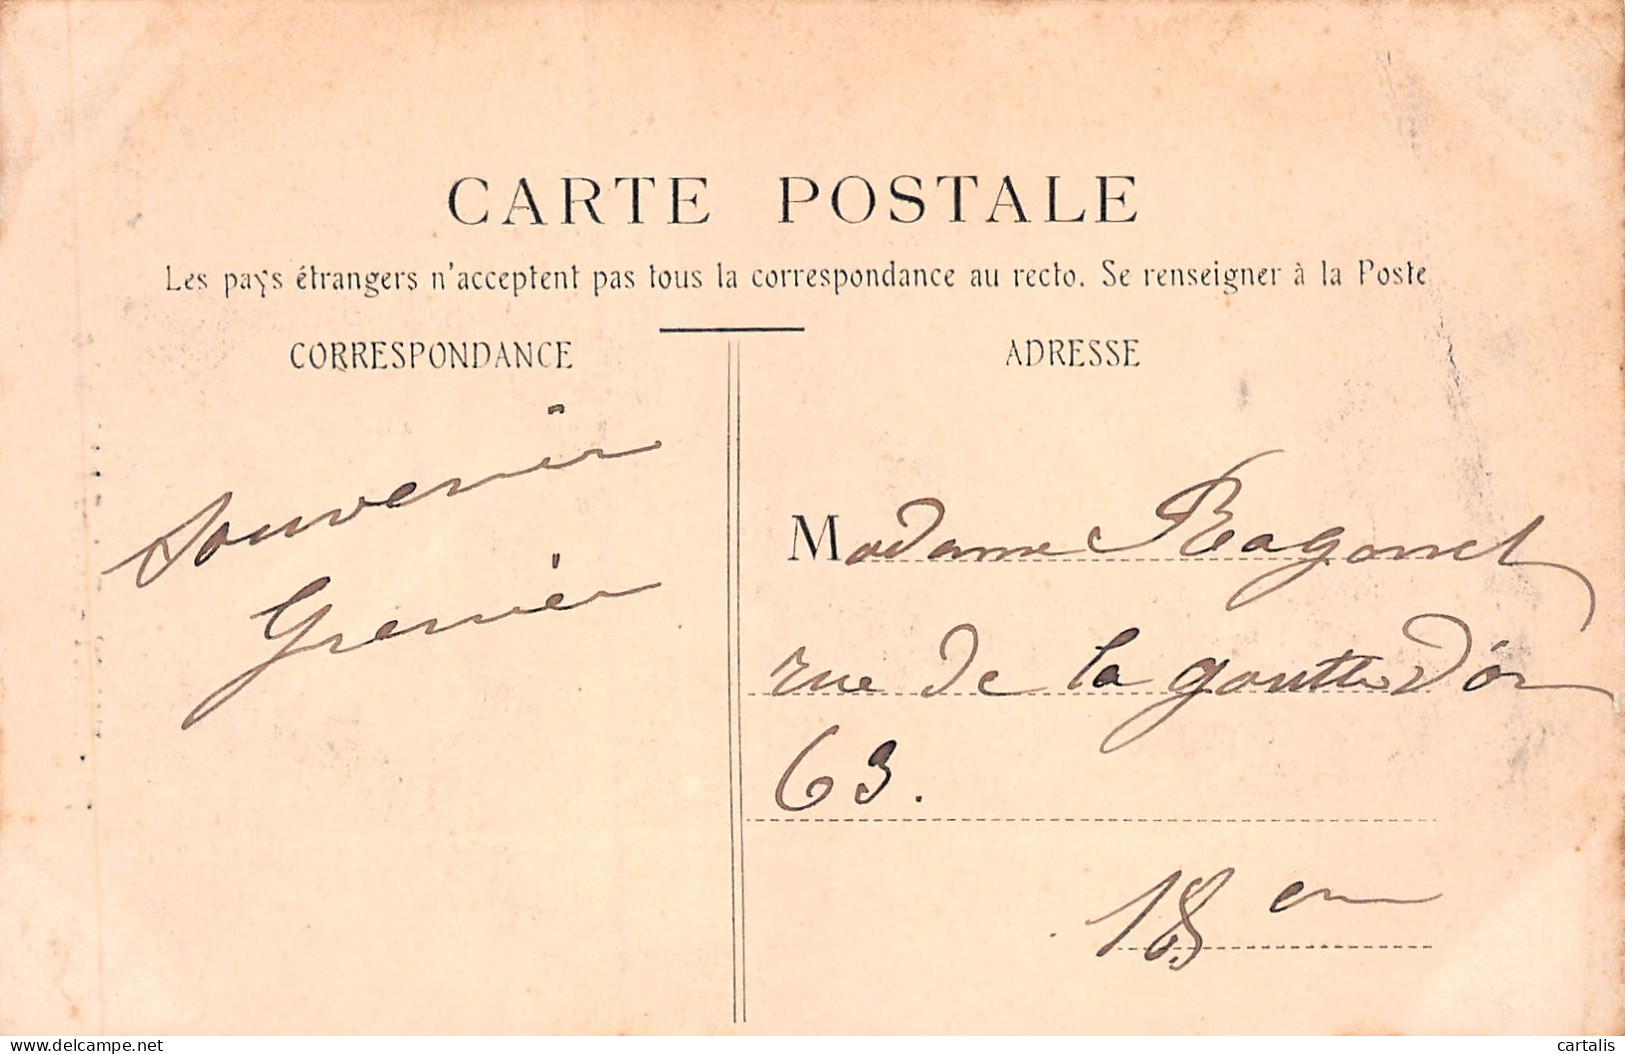 CARTE POSTALE
Les pays étrangers n'acceptent pas tous la correspondance au recto. Se renseigner à la Poste
CORRESPONDANCE
ADRESSE
Souvenir
Grenier
Madame Ragonet
rue de la goutte d'or
63.
18 em
www.delcampe.net
cartalis